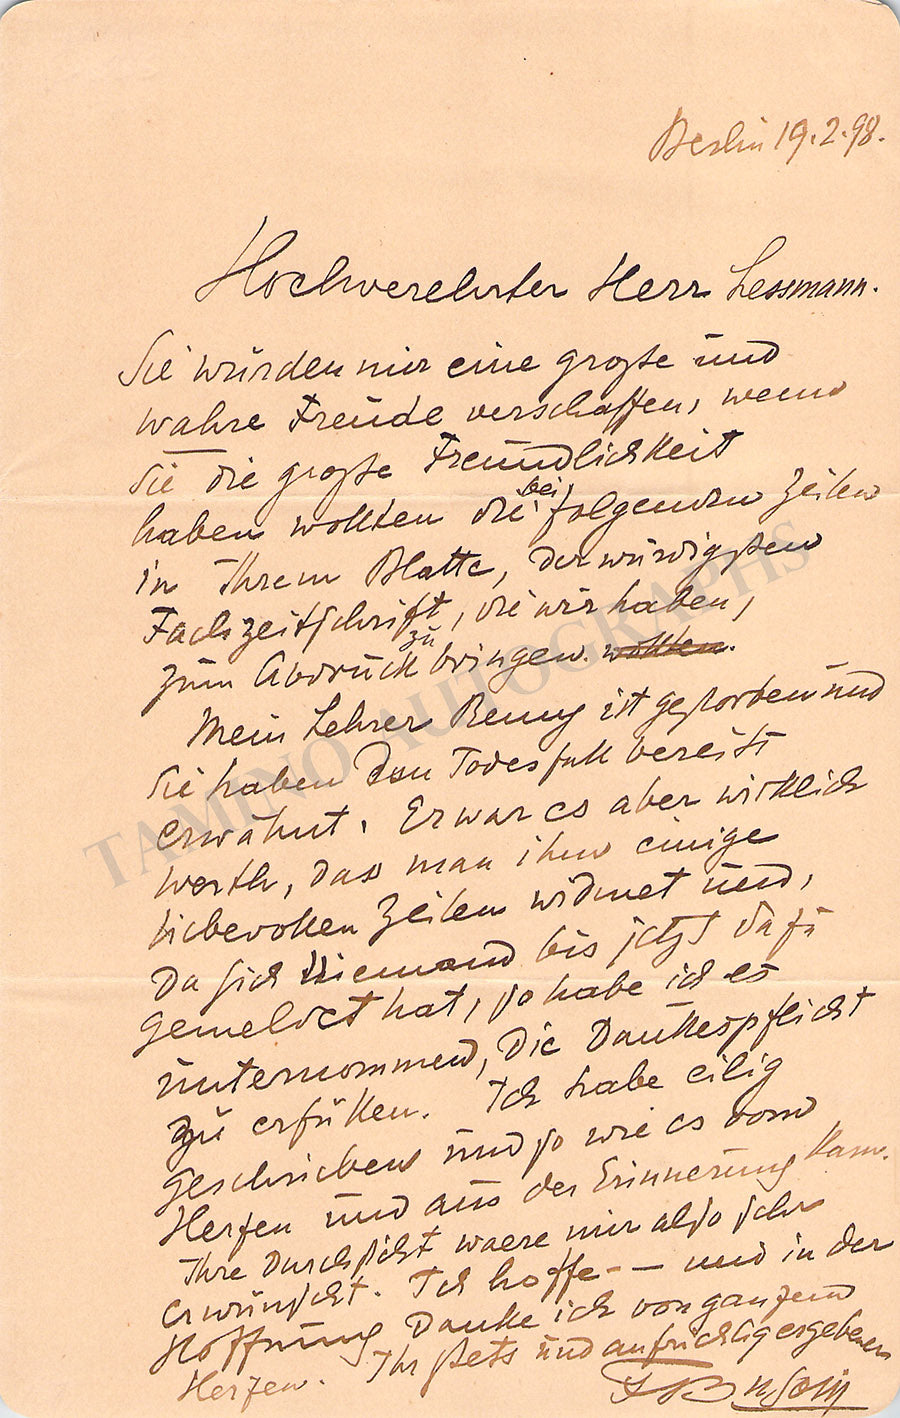 Berlin 19.2.98.
Hochverehrter Herr Lessmann.
Sie würden mir eine große und
wahre Freude verschaffen, wenn
Sie die große Freundlichkeit
haben wollten die beifolgenden Zeilen
in Ihrem Blatte, der würdigsten
Fachzeitschrift, die wir haben,
zum Abdruck zu bringen. wollten.
Mein Lehrer Remy ist gestorben und
Sie haben den Todesfall bereits
erwähnt. Er war es aber wirklich
werth, dass man ihm einige
liebevollen Zeilen widmet und,
da sich Niemand bis jetzt dafü
gemeldet hat, so habe ich es
unternommen, die Dankespflicht
zu erfüllen. Ich habe eilig
geschrieben und so wie es vom
Herzen und aus der Erinnerung kam.
Ihre Durchsicht waere mir also sehr
erwünscht. Ich hoffe -- und in der
Hoffnung danke ich von ganzem
Herzen. Ihr stets und aufrichtig ergebener
FBusoni
TAMINO AUTOGRAPHS